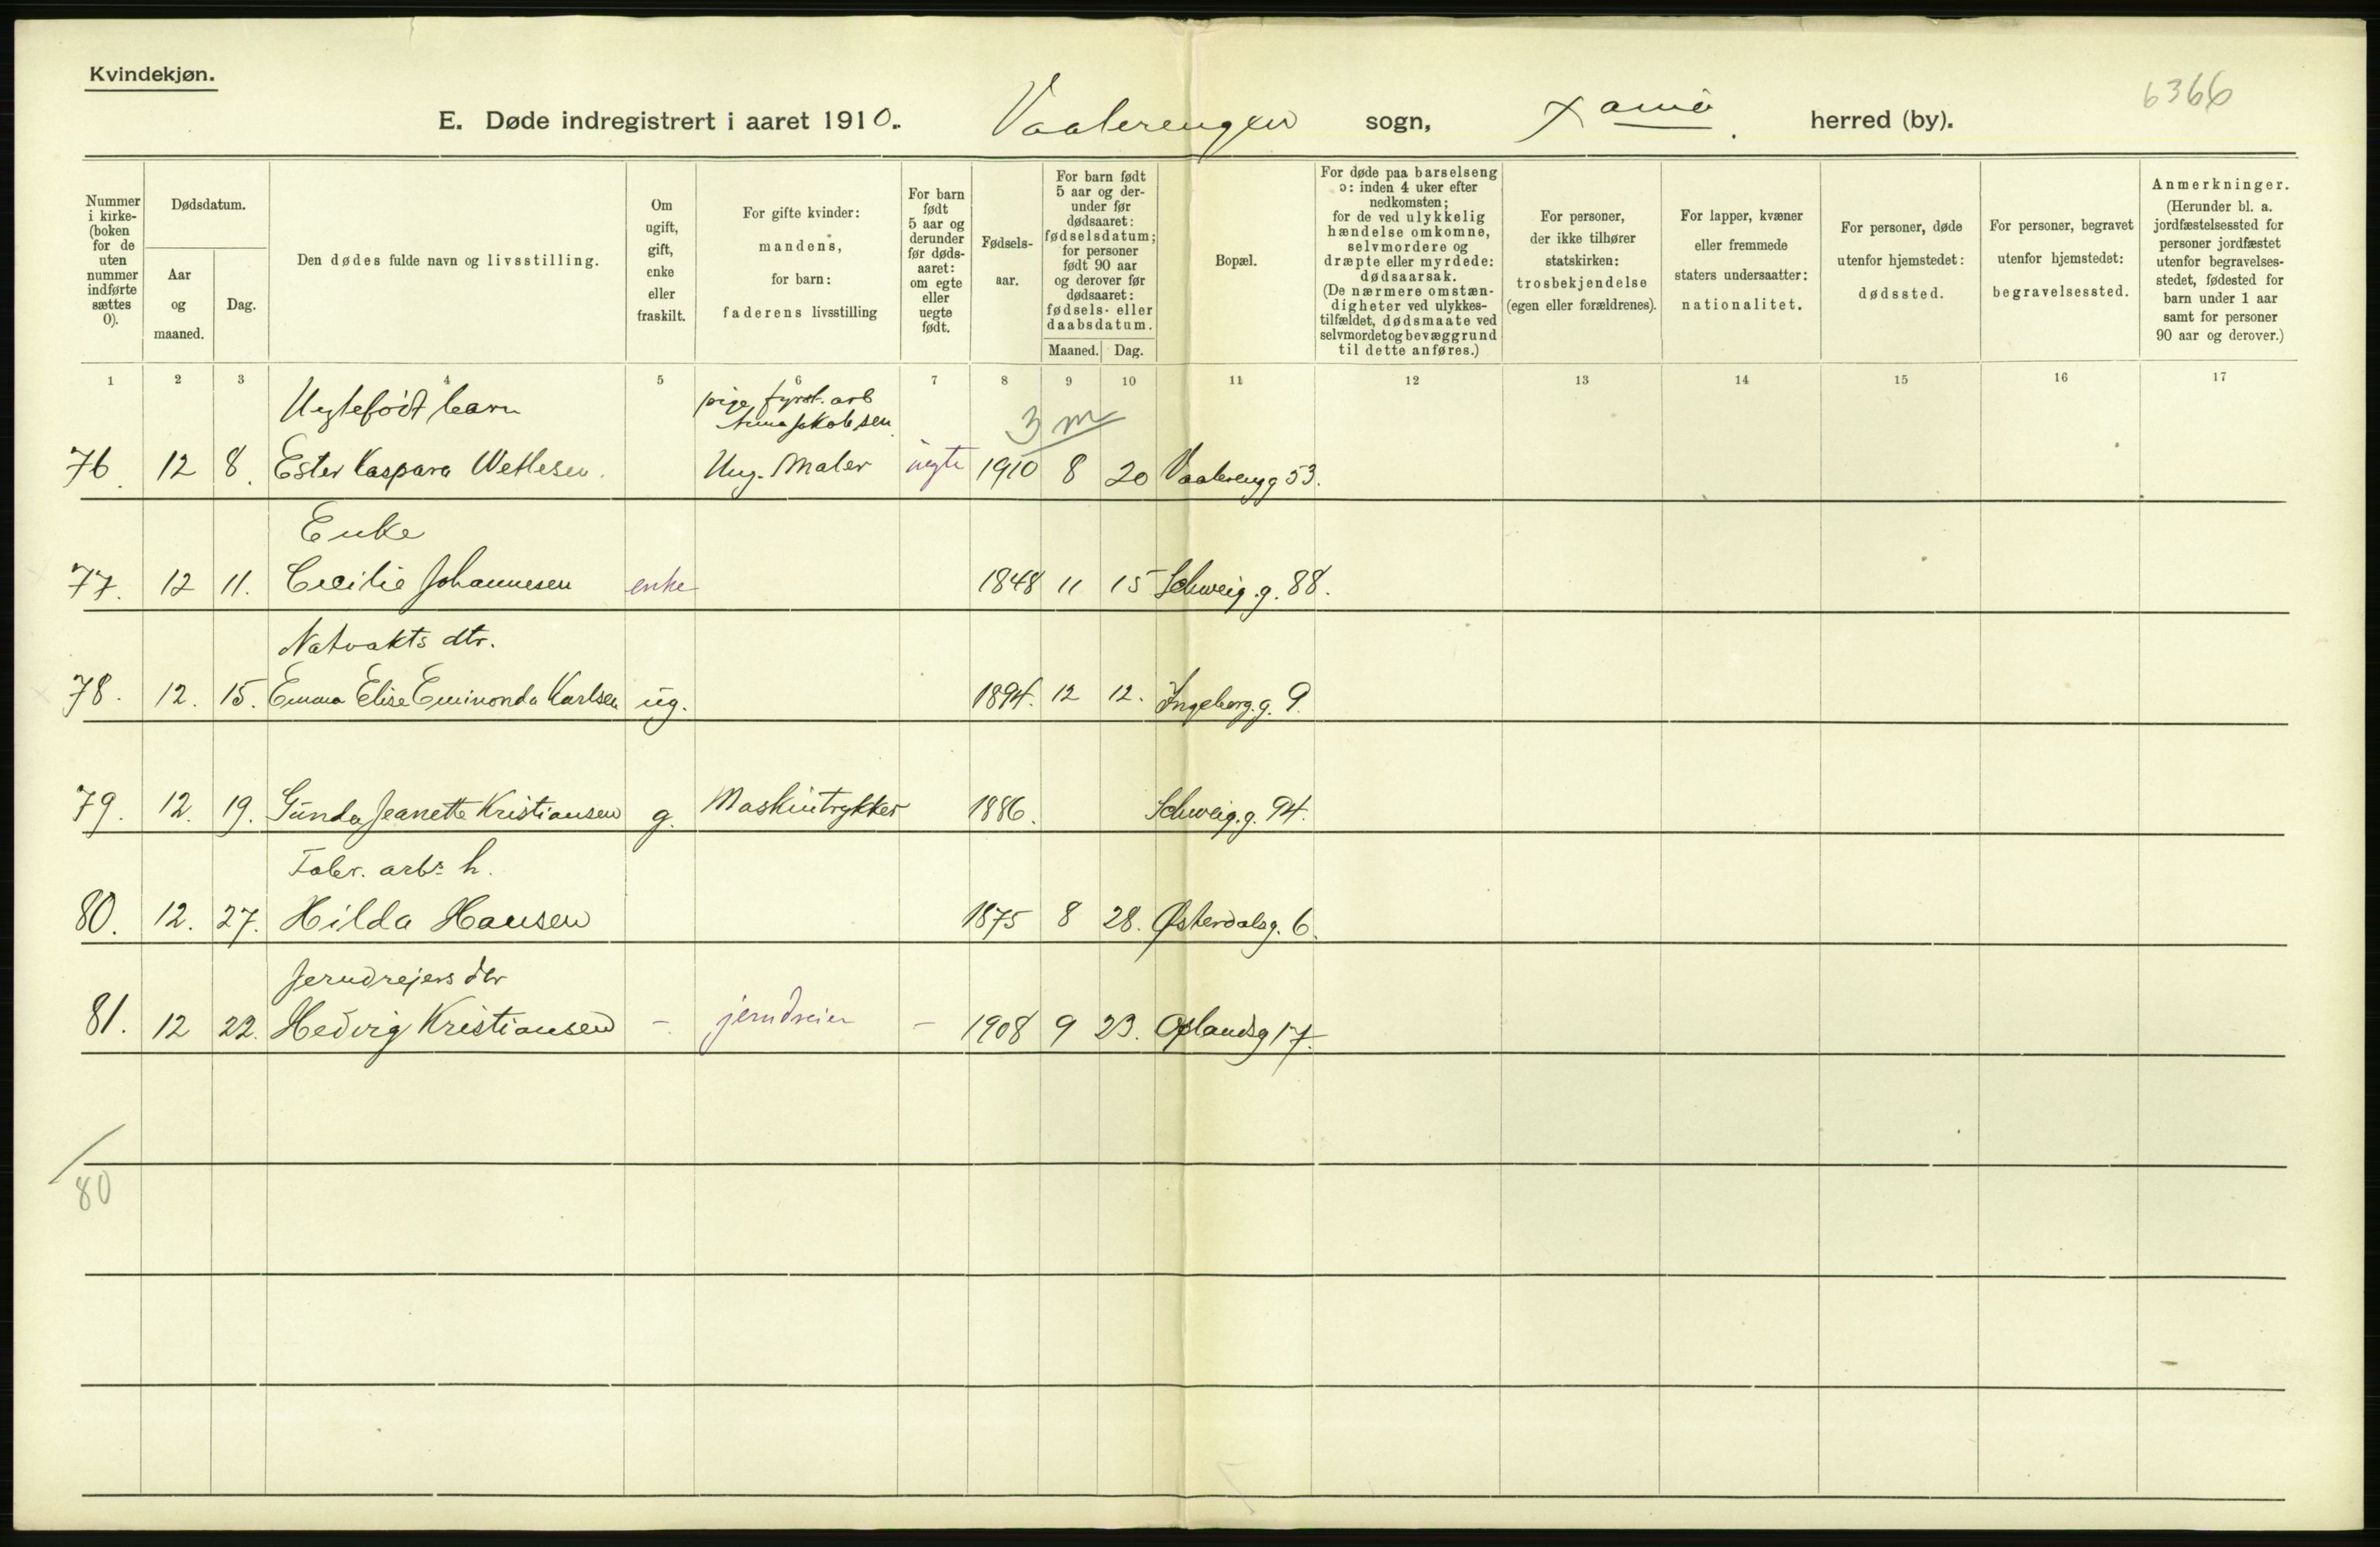 Kvindekjøn.
6366
E. Døde indregistrert i aaret 1910. Vaalerengen sogn, Xania herred (by).
Nummer i kirke- (boken for de uten nummer indførte sættes 0).
Dødsdatum.
Aar og maaned.
Dag.
Den dødes fulde navn og livsstilling.
Om ugift, gift, enke eller fraskilt.
For gifte kvinder: mandens, for barn: faderens livsstilling
For barn født 5 aar og derunder før døds- aaret: om egte eller uegte født.
Fødsels- aar.
For barn født 5 aar og der- under før dødsaaret: fødselsdatum; for personer født 90 aar og derover før dødsaaret: fødsels- eller daabsdatum.
Maaned. Dag.
Bopæl.
For døde paa barselseng ɔ: inden 4 uker efter nedkomsten; for de ved ulykkelig hændelse omkomne, selvmordere og dræpte eller myrdede: dødsaarsak. (De nærmere omstæn- digheter ved ulykkes- tilfældet, dødsmaate ved selvmordet og bevæggrund til dette anføres.)
For personer, der ikke tilhører statskirken: trosbekjendelse (egen eller forældrenes).
For lapper, kvæner eller fremmede staters undersaatter: nationalitet.
For personer, døde utenfor hjemstedet: dødssted.
For personer, begravet utenfor hjemstedet: begravelsessted.
Anmerkninger. (Herunder bl. a. jordfæstelsessted for personer jordfæstet utenfor begravelses- stedet, fødested for barn under 1 aar samt for personer 90 aar og derover.)
1 2 3 4 5 6 7 8 9 10 11 12 13 14 15 16 17
Uegtefødt barn pige, fyrst. arb
Anna Jakobsen 3 m
76. 12 8. Ester Kaspara Wetlesen. Ung. Maler uegte 1910 8 20 Vaalereng g 53.
Enke
77. 12 11. Cecilie Johannesen enke 1848 11 15 Schweig. g. 88.
Natvakts dtr.
78. 12. 15. Emma Elise Eminonda Karlsen ug. 1894. 12 12. Ingeborg. g. 9.
79. 12. 19. Gunda Jeanette Kristiansen g. Maskintrykker 1886. Schweig. g. 94.
Fabr. arbs h.
80. 12. 27. Hilda Hansen 1875 8 28. Østerdalsg. 6.
Jerndrejers dtr
81. 12 22. Hedvig Kristiansen - jerndreier - 1908 9 23. Oplandsg 17.
80